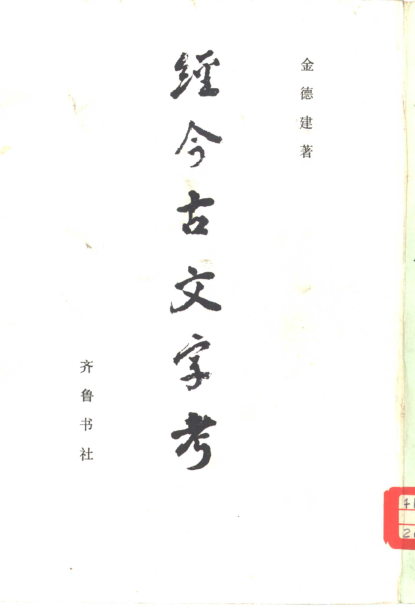 金德建著
經今古文字考
齐鲁书社